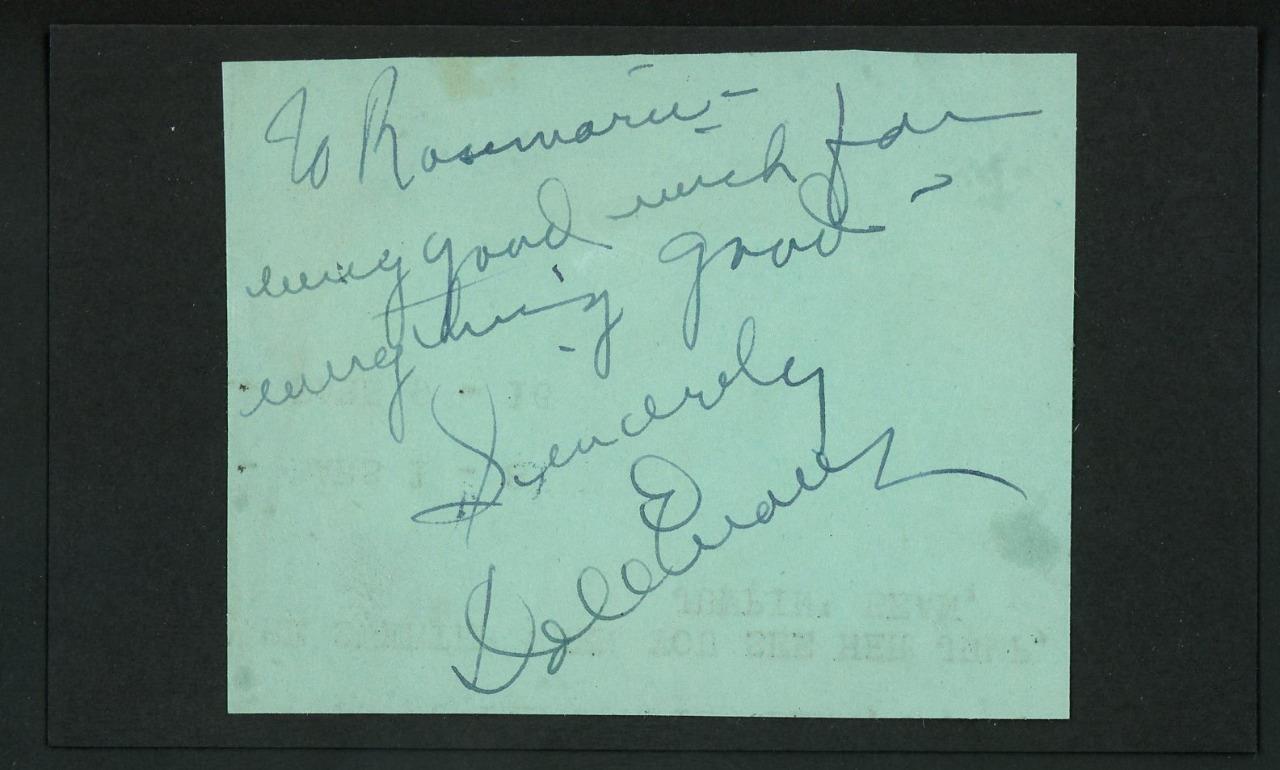 To Rosemarie -
every good wish for
everything good -
Sincerely
Dale Evans